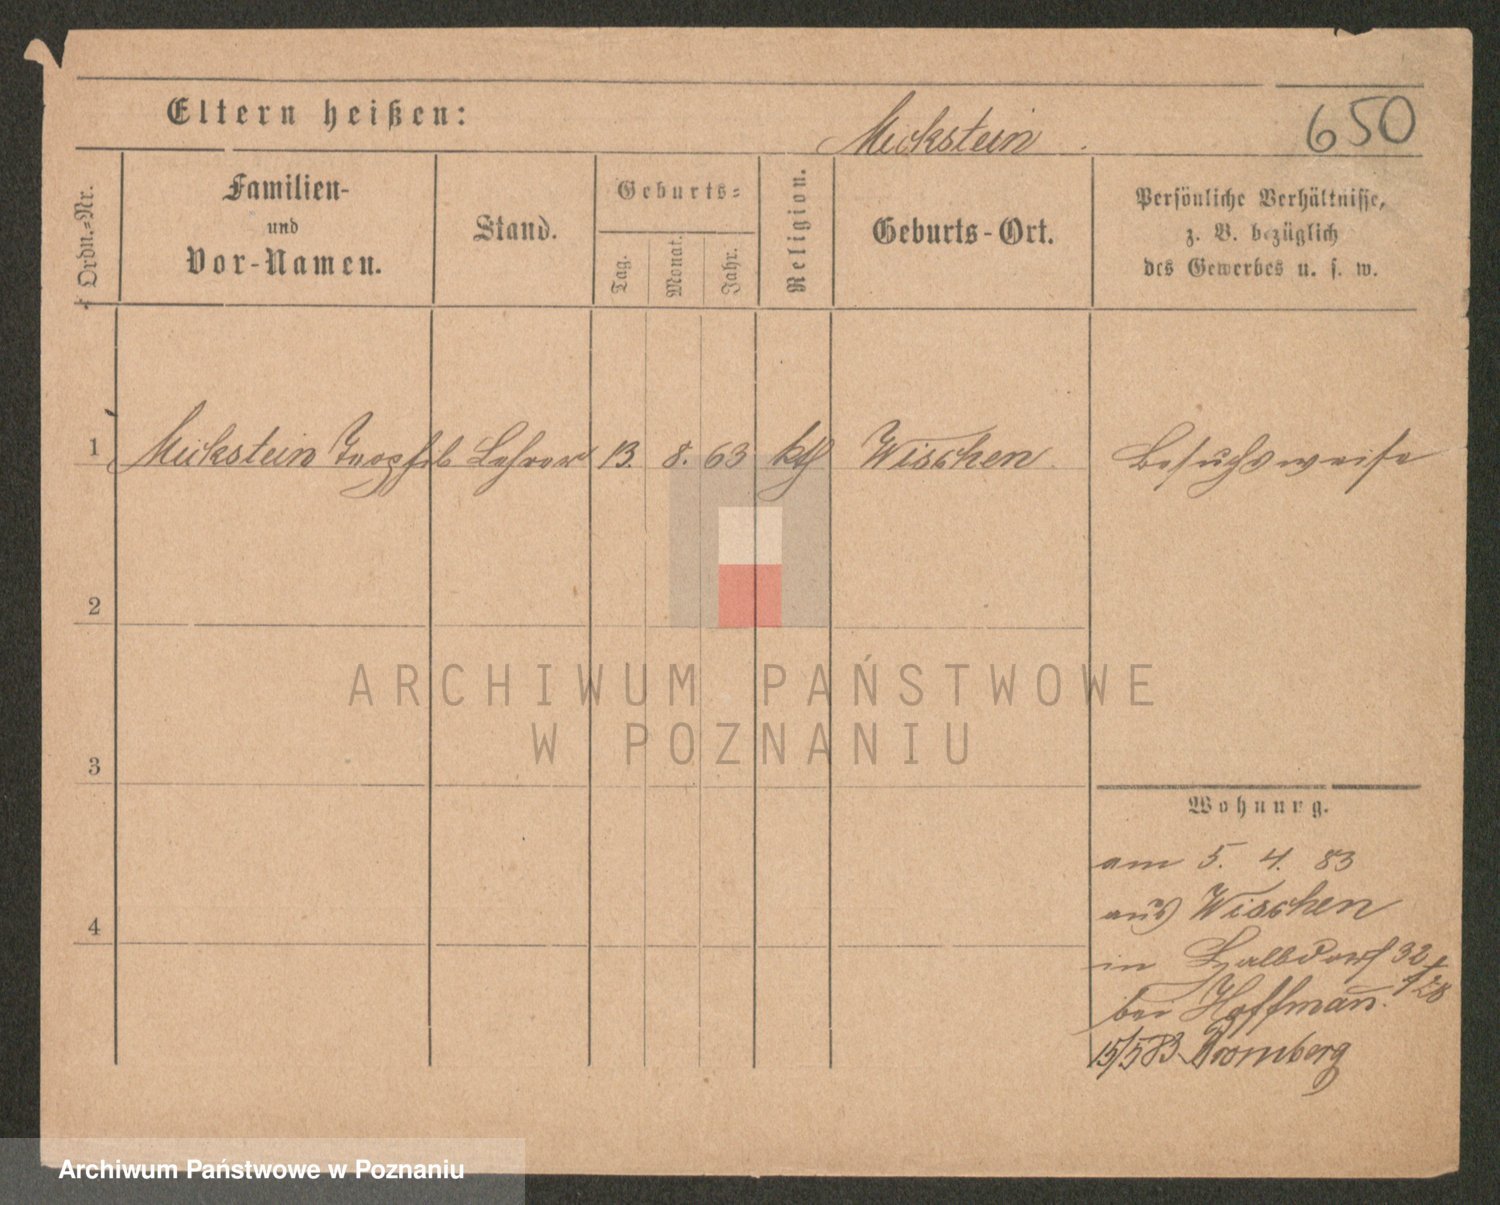 Eltern heißen:
Muckstein
650
Ordn.-Nr.
Familien-
und
Vor-Namen.
Stand.
Geburts-
Tag.
Monat.
Jahr.
Religion.
Geburts-Ort.
Persönliche Verhältnisse,
z. B. bezüglich
des Gewerbes u. s. w.
1 Muckstein Lehrer 13. 8. 63 kth Wischen Besuchsweise
2
3
4
Wohnung.
am 5. 4. 83
aus Wischen
in Halbdorf 32
bei Hoffmann.
15/5 83 Bromberg
ARCHIWUM PAŃSTWOWE
W POZNANIU
Archiwum Państwowe w Poznaniu